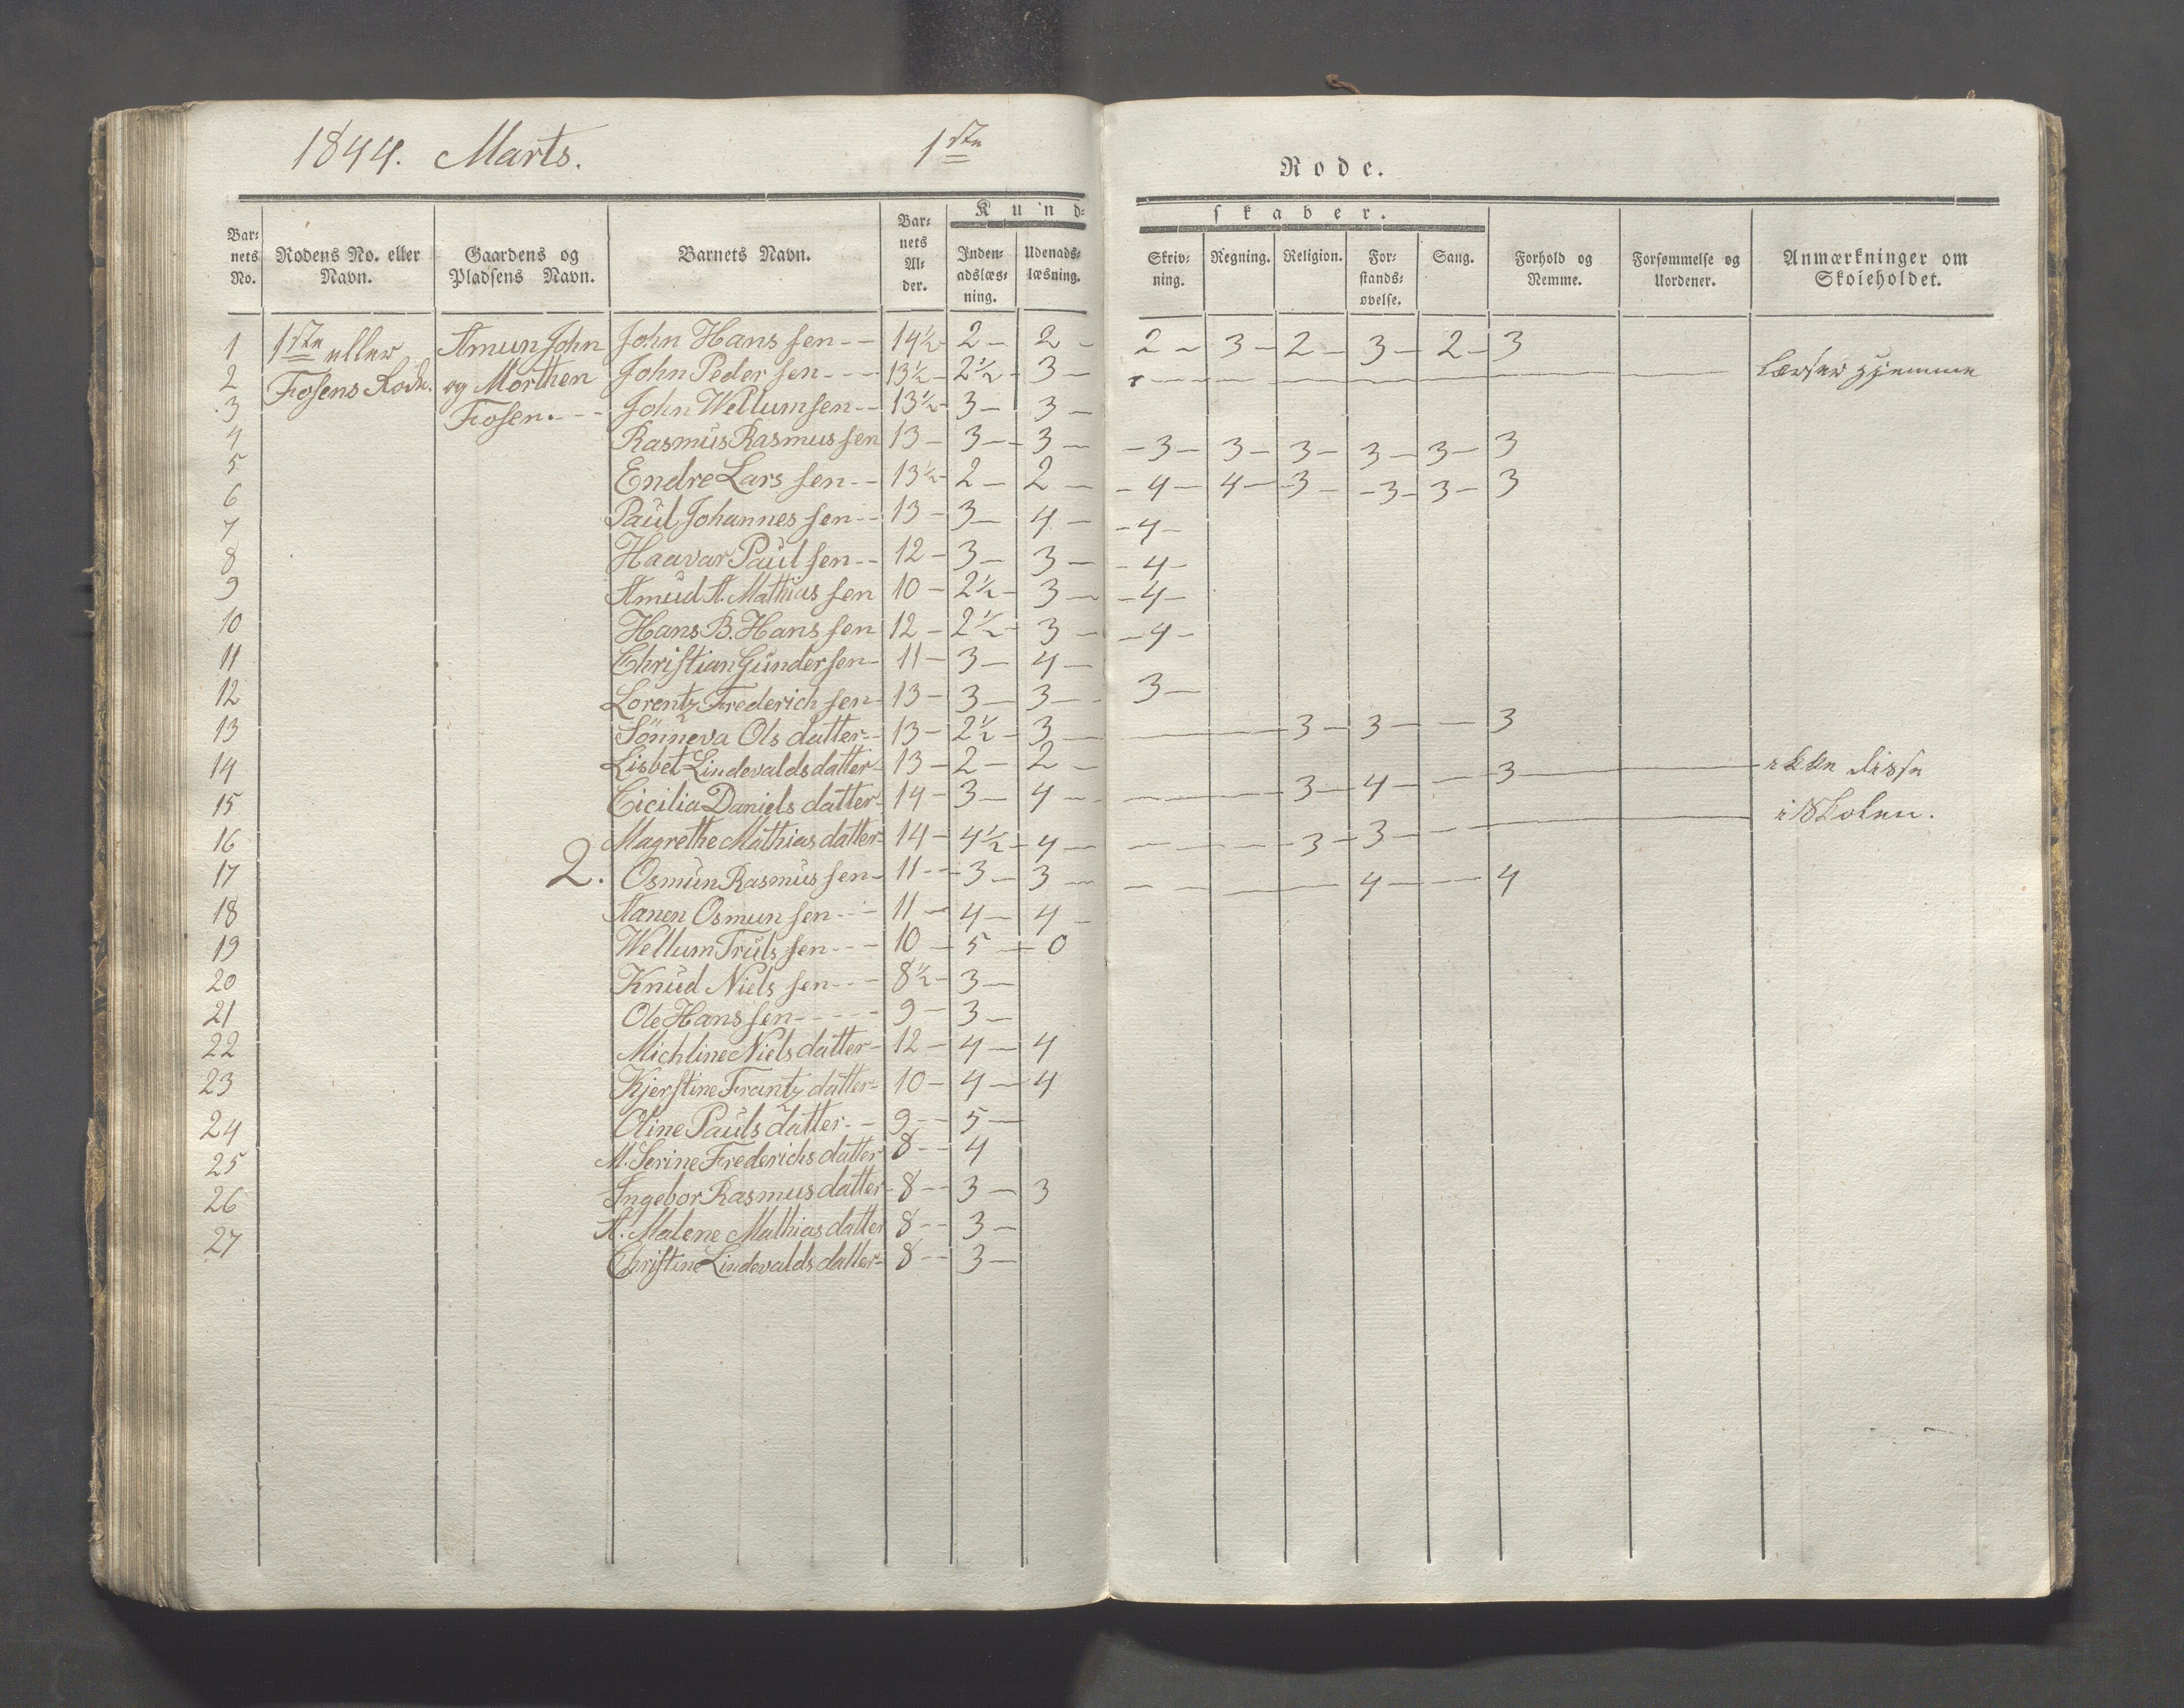 1844. Marts. 1ste Rode.
Kund- skaber.
Bar- nets No. | Rodens No. eller Navn. | Gaardens og Pladsens Navn. | Barnets Navn. | Bar- nets Al- der. | Inden- adslæs- ning. | Udenads- læsning. | Skriv- ning. | Regning. | Religion. | For- stands- øvelse. | Sang. | Forhold og Nemme. | Forsømmelse og Uordener. | Anmærkninger om Skoleholdet.
1 1ste eller Amun John John Hanssen -- 14½ 2 – 2 – 2 – 3 – 2 – 3 – 2 – 3
2 Fosens Rode. og Morthen John Pedersen --- 13½ – 2½ – 3 – Læser hjemme
3 Fosen. -- John Wellumsen -- 13½ – 3 – 3 –
4 Rasmus Rasmussen 13 – 3 – 3 – – 3 – 3 – 3 – 3 – 3 – 3
5 Endre Larssen -- 13½ – 2 – 2 – – 4 – 4 – 3 – – 3 – 3 – 3
6 Paul Johannessen -- 13 – 3 – 4 – – 4 –
7 Haavar Paulsen -- 12 – 3 – 3 – – 4 –
8 Amud A. Mathiassen 10 – 2½ – 3 – – 4 –
9 Hans B. Hanssen 12 – 2½ – 3 – – 4 –
10 Christian Gundersen – 11 – 3 – 4 –
11 Lorentz Frederichsen – 13 – 3 – 3 – 3 –
12 Sönneva Olsdatter -- 13 – 2½ – 3 – – 3 – 3 – – 3
13 Lisbet Lindevaldsdatter 13 – 2 – 2 –
14 Cicilia Danielsdatter – 14 – 3 – 4 – – 3 – 4 – – 3 – ikke disse
15 Magrethe Mathiasdatter – 14 – 4½ – 4 – – 3 – 3 – – i Skolen.
16 2. Osmun Rasmussen – 11 – 3 – 3 – – 4 – – 4
17 Aanen Osmunsen -- 11 – 4 – 4 –
18 Wellum Trulssen -- 10 – 5 – 0
19 Knud Nielssen -- 8½ – 3 –
20 Ole Hanssen ---- 9 – 3 –
21 Michline Nielsdatter – 12 – 4 – 4
22 Kjerstine Frantzdatter – 10 – 4 – 4
23 Oline Paulsdatter -- 9 – 5 –
24 M. Serine Frederichsdatter 8 – 4
25 Ingebor Rasmusdatter 8 – 3 – 3
26 A. Malene Mathiasdatter 8 – 3 –
27 Christine Lindevaldsdatter – 8 – 3 –